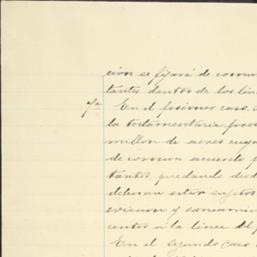 cion se fijará de comun
tantes dentro de los lin
En el primer caso,
la testamentaria
millon de acres cuya
de comun acuerdo
tantes, quedando desd
deberan estar sujetos
eviccion y saneamien
contos a la linea del
En el segundo caso